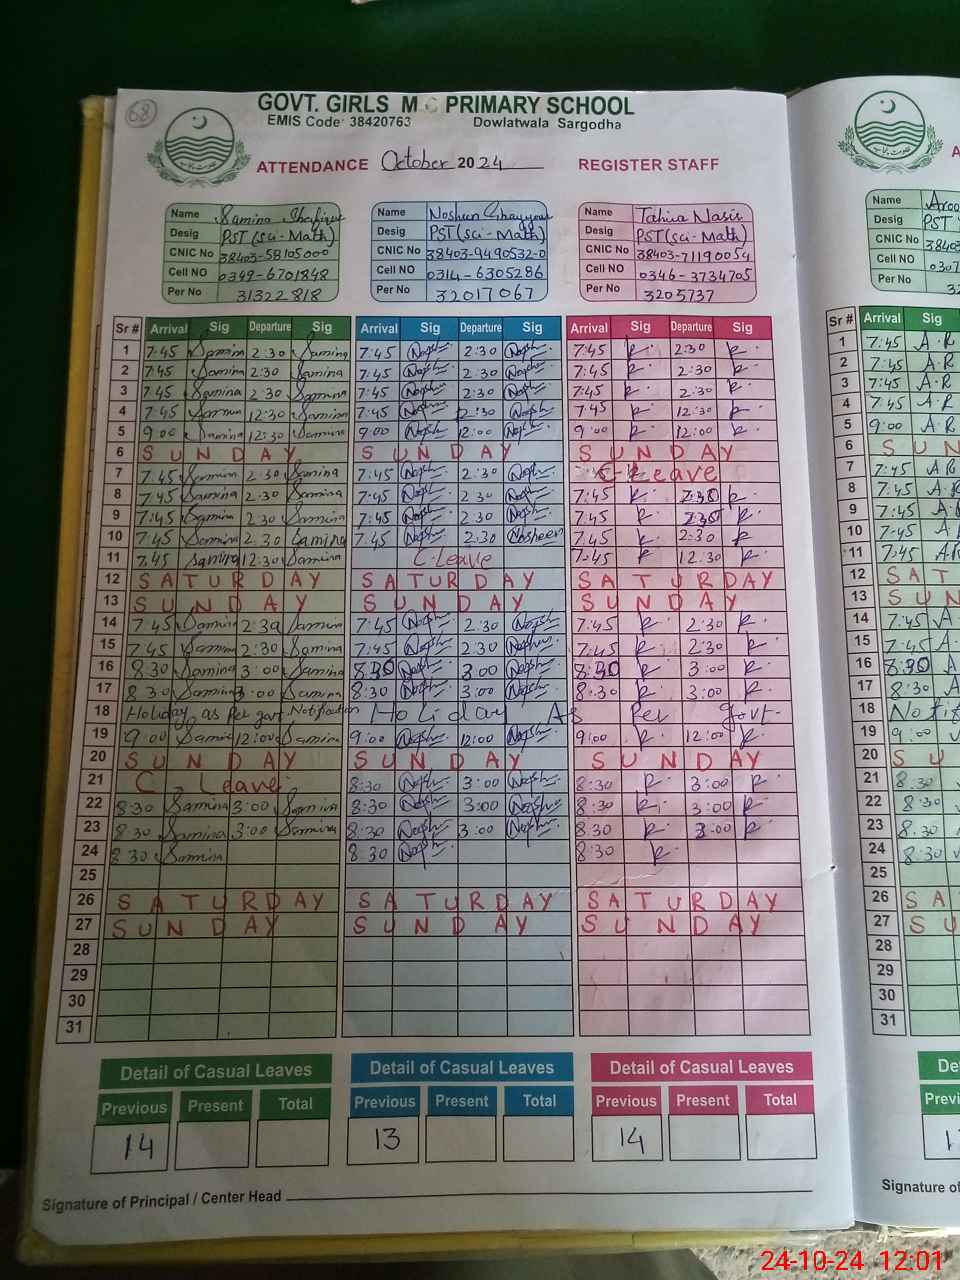 68
GOVT. GIRLS M C PRIMARY SCHOOL
EMIS Code: 38420763 Dowlatwala Sargodha
ATTENDANCE October 2024 REGISTER STAFF
Name Samina Name Nosheen Name Tahira Nasir Name
Desig PST (sci-Math) Desig PST (sci-Math) Desig PST (sci-Math) Desig PST
CNIC No 38403-58105000 CNIC No 38403-9490532-0 CNIC No 38403-71190054 CNIC No 38403
Cell NO 0349-6701848 Cell NO 0314-6305286 Cell NO 0346-3734705 Cell NO 030
Per No 31322818 Per No 32017067 Per No 3205737 Per No 32
Sr # Arrival Sig Departure Sig Arrival Sig Departure Sig Arrival Sig Departure Sig Sr # Arrival Sig
1 7:45 Samina 2:30 Samina 7:45 2:30 7:45 2:30 1 7:45 A.R
2 7:45 Samina 2:30 Samina 7:45 2:30 7:45 2:30 2 7:45 A.R
3 7:45 Samina 2:30 Samina 7:45 2:30 7:45 2:30 3 7:45 A.R
4 7:45 Samina 12:30 Samina 7:45 7:45 12:30 4 7:45 A.R
5 9:00 Samina 12:30 Samina 9:00 12:00 9:00 12:00 5 9:00 A.R
6 SUNDAY SUNDAY SUNDAY 6 SUN
7 7:45 Samina 2:30 Samina 7:45 2:30 C-Leave 7 7:45 A R
8 7:45 Samina 2:30 Samina 7:45 2:30 7:45 8 7:45
9 7:45 Samina 2:30 Samina 7:45 2:30 7:45 9 7:45
10 7:45 Samina 2:30 Samina 7:45 2:30 Nosheen 7:45 2:30 10 7:45
11 7:45 Samina 12:30 Samina C-Leave 7:45 12:30 11 7:45
12 SATURDAY SATURDAY SATURDAY 12 SAT
13 SUNDAY SUNDAY SUNDAY 13 SUN
14 7:45 Samina 2:30 Samina 7:45 2:30 7:45 2:30 14 7:45
15 7:45 Samina 2:30 Samina 7:45 2:30 7:45 2:30 15 7:45
16 8:30 Samina 3:00 Samina 8:30 3:00 8:30 3:00 16 8:30
17 8:30 Samina 3:00 Samina 8:30 3:00 8:30 3:00 17 8:30
18 Holiday as Per govt. Notification Holiday As Per Govt- 18 Notif
19 9:00 Samina 12:00 Samina 9:00 12:00 9:00 12:00 19 9:00
20 SUNDAY SUNDAY SUNDAY 20 SU
21 C-Leave 8:30 3:00 8:30 3:00 21 8:30
22 8:30 Samina 3:00 Samina 8:30 3:00 8:30 3:00 22 8:30
23 8:30 Samina 3:00 Samina 8:30 3:00 8:30 3:00 23 8:30
24 8:30 Samina 8:30 8:30 24 8:30
25 25
26 SATURDAY SATURDAY SATURDAY 26 SA
27 SUNDAY SUNDAY SUNDAY 27 SU
28 28
29 29
30 30
31 31
Detail of Casual Leaves Detail of Casual Leaves Detail of Casual Leaves De
Previous Present Total Previous Present Total Previous Present Total Previ
14 13 14
Signature of Principal / Center Head Signature of
24-10-24 12:01